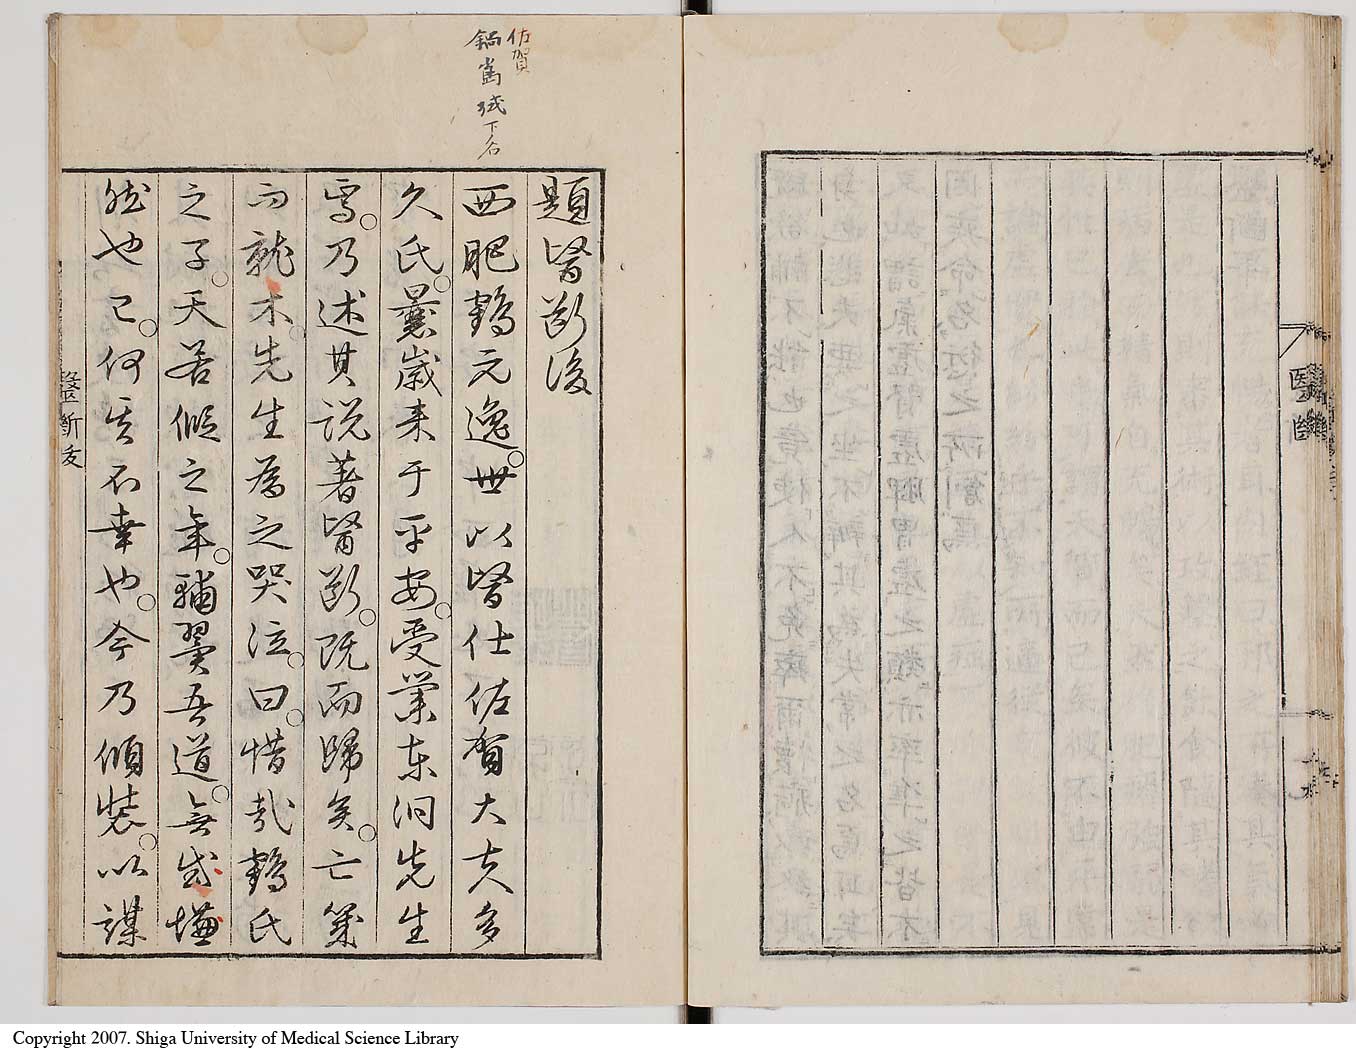 醫斷
佐賀
鍋嶌城下名
題醫斷後
西肥鶴元逸。世以醫仕佐賀大夫多
久氏。曩歲来于平安。受業東洞先生
焉。乃述其説著醫斷。既而歸矣。亡幾
而就木。先生為之哭泣。曰。惜哉鶴氏
之子。天若假之年。輔翼吾道。無慊
然也已。何其不幸也。今乃傾装。以謀
醫斷